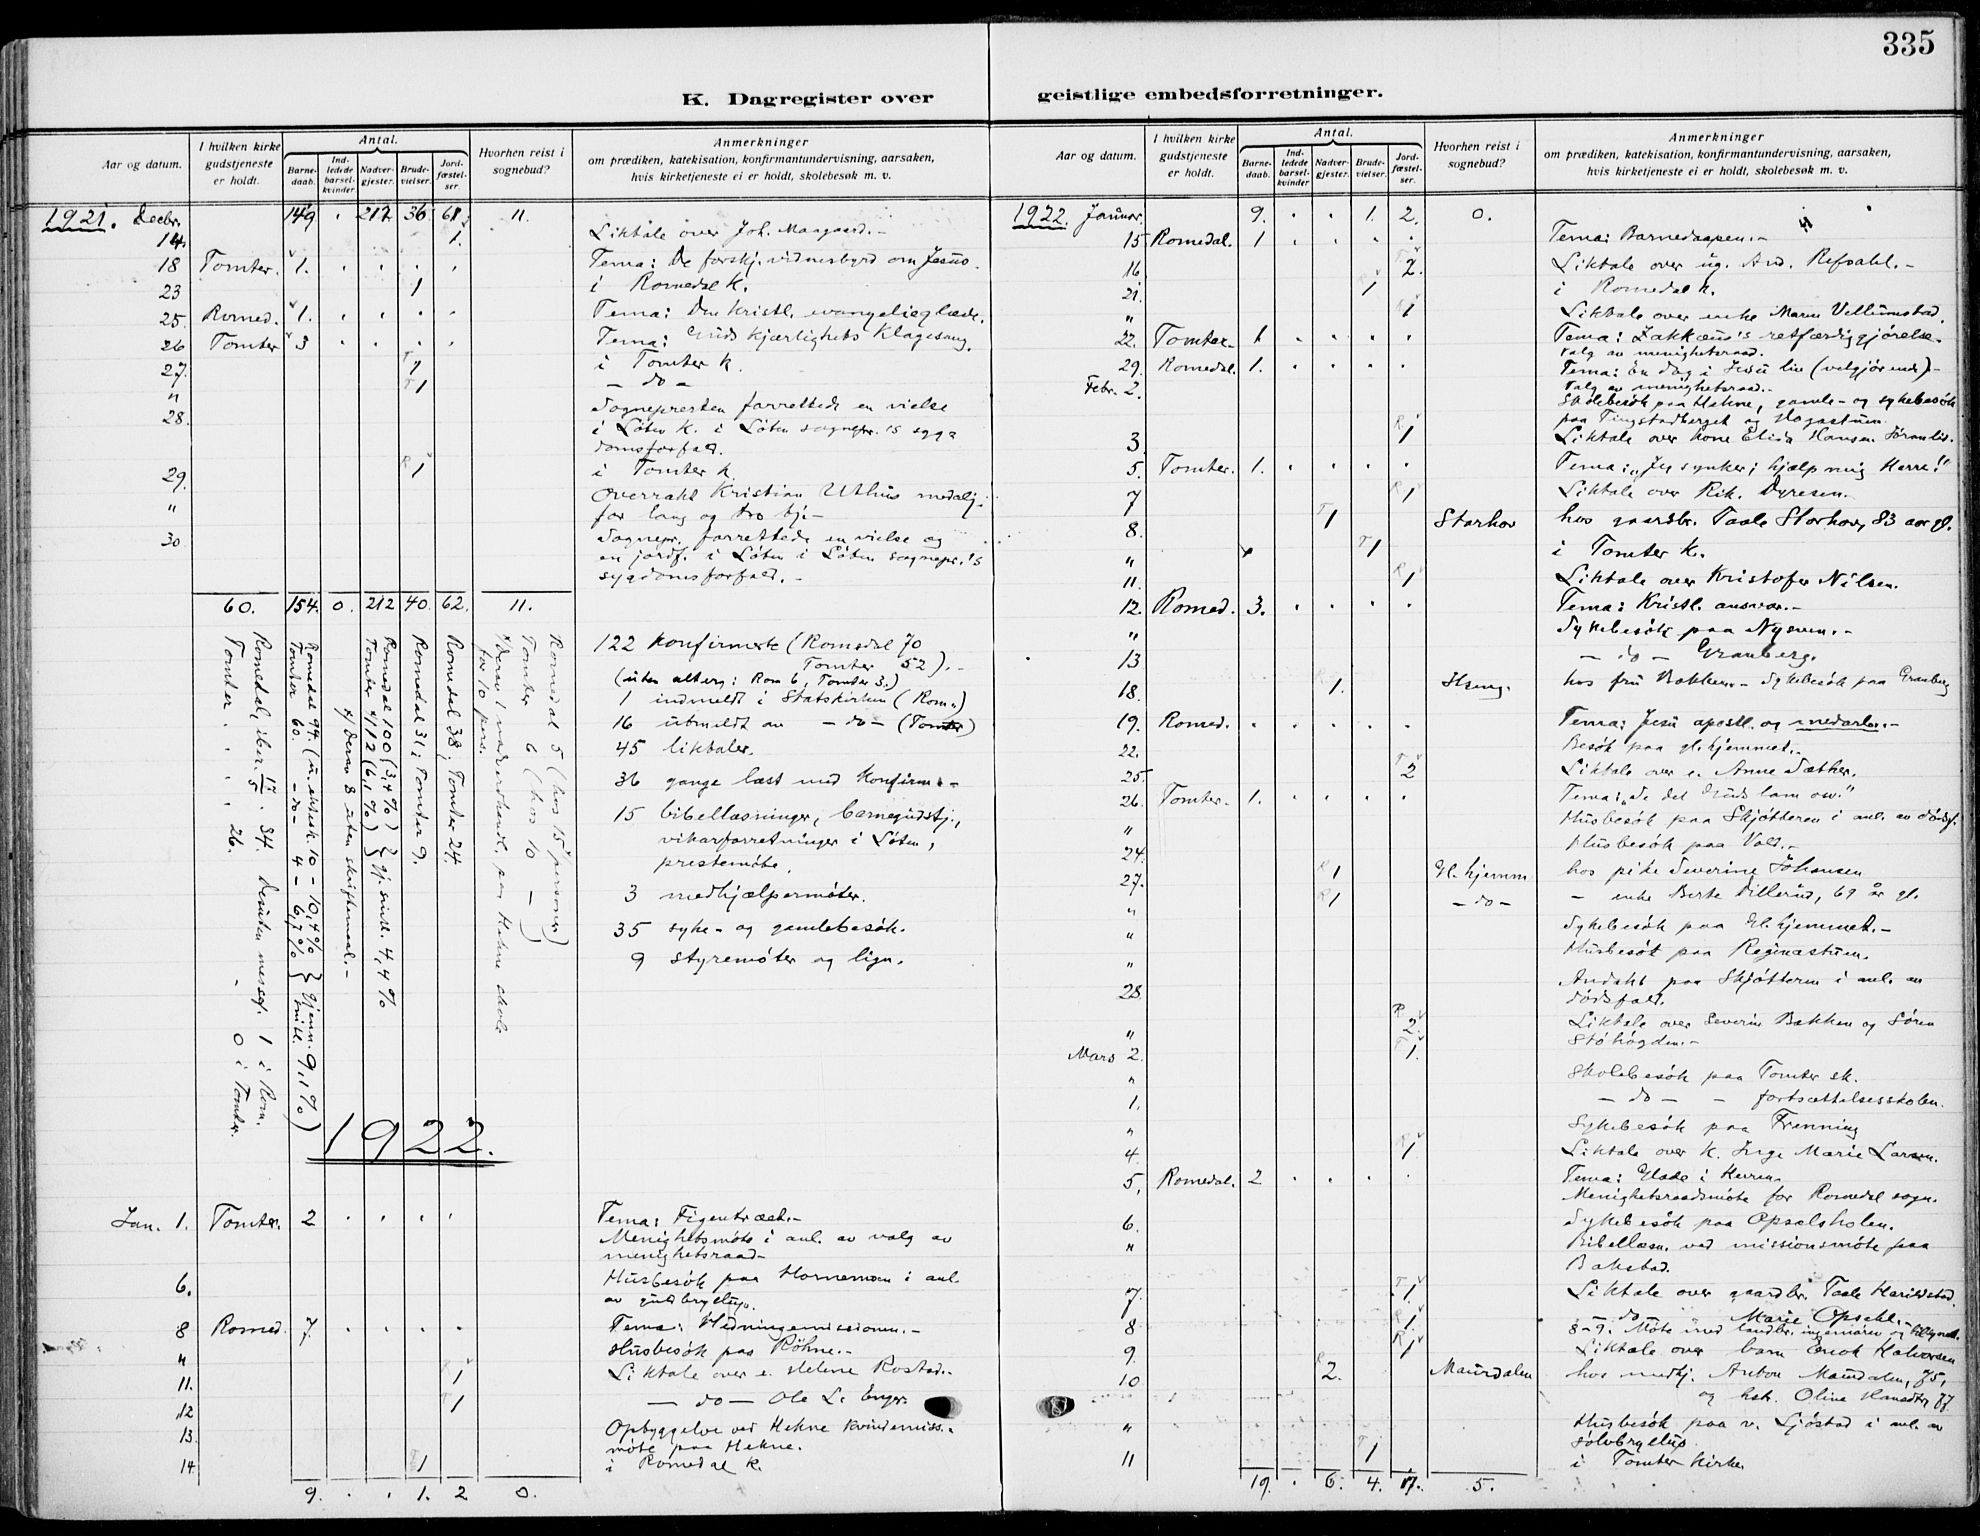 335
K. Dagregister over
geistlige embedsforretninger.
Aar og datum.
I hvilken kirke gudstjeneste er holdt.
Antal.
Barnedaab.
Indledede barselkvinder
Nadvergjester.
Brudevielser.
Jordfæstelser.
Hvorhen reist i sognebud?
Anmerkninger
om prædiken, katekisation, konfirmantundervisning, aarsaken,
hvis kirketjeneste ei er holdt, skolebesøk m. v.
1921. Decbr. 149 . 212. 36. 61. 11.
14. 1. Liktale over Joh. Maagaard.-
18 Tomter. 1. . . . . Tema: De forskj. vidnesbyrd om Jesus.
23 1 i Romedal K.
25. Romed. 1. . . . . Tema: Den kristl. evangelieglæde.
26 Tomter 3 . . . . Tema: Guds kjærlighets Klagesang.
27. T 1 i Tomter k.
" T 1 - do -
28. Sognepresten forrettede en vielse
i Løten K. i Løten sognepr.'s syg=
domsforfald.
29. R 1 i Tomter k.
" Overrakt Kristian Uthus medalj.
for lang og tro tj.-
30 Sognepr. forrettede en vielse og
en jordf. i Løten i Løten sognepr.'s
sygdomsforfald.-
60. 154. 0. 212 40. 62. 11.
Romedal 5 (hos 15 personer)
Tomter 6 (hos 10 - )
Romedal 38, Tomter 24.
Romedal 31, Tomter 9.
Romedal 100 (3,4%)
Tomter x/112 (6,1%) } gj.snitl. 4,4%
x/ Derav 8 uten skriftemaal.-
Romedal 94. (u. ektesk. 10 - 10,4%
Tomter 60. - do - 4 - 6,7% } gjenn.snitl. 9,1%)
Romedal: 34. Desuten messef. 1 i Rom.
Tomter . . . 26. 0 i Tomter.
122 Konfirmerte (Romedal 70
Tomter 52).-
(uten alterg: Rom 6, Tomter 3.)
1 indmeldt i Statskirken (Rom.)
16 utmeldt av - do - (Tomter)
45 liktaler.
36 gange læst med Konfirm.-
15 bibellæsninger, barnegudstj.,
vikarforretninger i Løten,
prestemøte.
3 medhjælpermøter.
35 syke- og gamlebesøk.
9 styremøter og lign.
1922.
Jan. 1. Tomter. 2 . . . . Tema: Figentræet.-
Menighetsmøte i anl. av valg av
menighetsraad-
6. Husbesøk paa Hornemoen i anl.
av guldbryllup.
8 Romed. 7. . . . . Tema: Hedningemissionen.-
" Husbesøk paa Røhne.-
11. 1 Liktale over e. Helene Rostad.-
12 T 1 - do - Ole L. Enger.
13. Opbyggelse ved Hekne Kvindemiss.-
møte paa Hekne.
14 1 i Romedal K.
9. . . 1. 2 0.
Aar og datum.
I hvilken kirke gudstjeneste er holdt.
Antal.
Barnedaab.
Indledede barselkvinder
Nadvergjester.
Brudevielser.
Jordfæstelser.
Hvorhen reist i sognebud?
Anmerkninger
om prædiken, katekisation, konfirmantundervisning, aarsaken,
hvis kirketjeneste ei er holdt, skolebesøk m. v.
1922. Januar. 9. . . 1. 2. 0.
15 Romedal. 1 . . . . Tema: Barnedaapen.-
16. 2. Liktale over ug. And. Refsahl.-
21. 1 i Romedal K.
" 1 Liktale over enke Maren Vellumstad.
22. Tomter- 1 . . . . Tema: Zakkæus's retfærdiggjørelse.
Valg av menighetsraad.
29. Romedal. 1. . . . . Tema: En dag i Jesu liv (velgjørende)-
Valg av menighetsraad.-
Febr. 2. Skolebesøk paa Hekne, gamle- og sykebesøk
paa Tingstadberget og Hogastuen.
3. R 1 Liktale over kone Elida Hansen
5. Tomter. 1. . . . . Tema: "Jeg synker; hjælp mig Herre!"
7 R 1 Liktale over Rik. Dyresen.-
8. T 1 Storhov hos gaardbr. Taale Storhov, 83 aar gl.
" T 1 i Tomter K.
11. R 1 Liktale over Kristofer Nilsen.
12. Romed. 3. . . . . Tema: Kristl. ansvar.-
" Sykebesøk paa Nysven.-
13 - do - Granberg.
18. 1. Hseng. hos fru Bakken.- Sykebesøk paa Granberg
19. Romed. . . . . . Tema: Jesu apostl. og medarb.-
22. Besøk paa gl.hjemmet.-
25 T 2 Liktale over e. Anne Sæther.
26. Tomter. 1. . . . . Tema: "Se det Guds lam osv."
" Husbesøk paa Skjøtteren i anl. av dødsf.
24. Husbesøk paa Vold.-
27. R 1 Gl.hjemm. hos pike Severine Johansen
" R 1 - do - - enke Berte Dillerud, 69 år gl.
" Sykebesøk paa Gl.hjemmet.-
" Husbesøk paa Reginastuen.
28. Andakt paa Skjøtteren i anl. av
dødsfald.
" R 2 Liktale over Severin Bakken og Søren
Støhøgden.-
Mars 2. T 1.
" Skolebesøk paa Tomter sk.
1. - do - - fortsættelsesskolen.
" Sykebesøk paa Frenning
4. R 1 Liktale over K. Inge Marie Larsen.
5. Romedal. 2 . . . . Tema: Glæde i Herren.
Menighetsraadsmøte for Romedal sogn.
6. Sykebesøk paa Opsalsholen.
" Bibellæsn. ved missionsmøte paa
Bakstad.
7. T 1. Liktale over gaardbr. Taale Harildstad.
8 R 1. - do - Marie Opsahl.-
8-9. Møte med landbr.ingeniøren og
9. R 1 Liktale over barn Erick Halvorsen
10 R 2. Maurdalen hos medhj. Anton Maurdalen, 75,
og hstr. Oline 77
" Husbesøk paa v. Ljøstad i anl. av
sølvbryllup.
11 T 1 i Tomter Kirke.
19. . 6. 4. 17. 5.